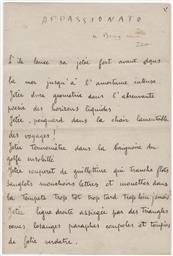 APPASSIONATO
S'il lance sa jetée fort avant dans
la mer jusqu'à l'amertume intense
Jetée dure geometrie dans l'abreuvante
poesie des horizons liquides
Jetée, poignard dans la chair lamentable
des voyages !
Jetée Termomètre dans la baignoire du
golfe
Jetée couperet de guillotine qui tranche flots
sanglots mouchoirs lettres et mouettes dans
la Tempete Trop tôt trop tard Trop loin jamais
Jetée ligne droite assiegée par des Triangles
cones losanges paraphes coupoles et toupies
de folie verdatre.